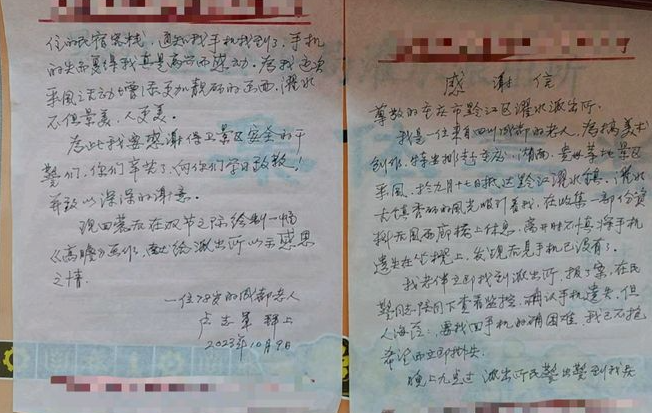 感谢信
尊敬的重庆市黔江区濯水派出所。
我是一位来自四川成都的老人，为搞美术
创作，特安排重庆、湖南、贵州等地景区
采风，于九月十七日抵达黔江濯水镇。濯水
古镇秀丽的风光吸引着我，在收集一部份资
料后风雨廊桥上休息，离开时不慎将手机
遗失在坐櫈上，发现后手机已没有了。
我老伴立即找到派出所，报了案，在民
警同志陪同下查看监控，确认手机遗失，但
人海茫茫，要找回手机的确困难，我已不抱
希望而立即挂失。
晚上九点过派出所民警出警到我居
住的民宿客栈，通知我手机找到了，手机
的失而复得我真是高兴而感动，为我这次
采风之行动增添更加靓丽的画面，濯水
不但景美，人更美。
为此我要感谢保卫景区安全的干
警们，你们辛苦了，向你们学习致敬！
并致以深深的谢意。
现回蓉后在双节之际绘制一幅
《高瞻》画作，画赠给派出所以示感恩
之情。
一位78岁的成都老人
卢志军 拜上
2023年10月9日